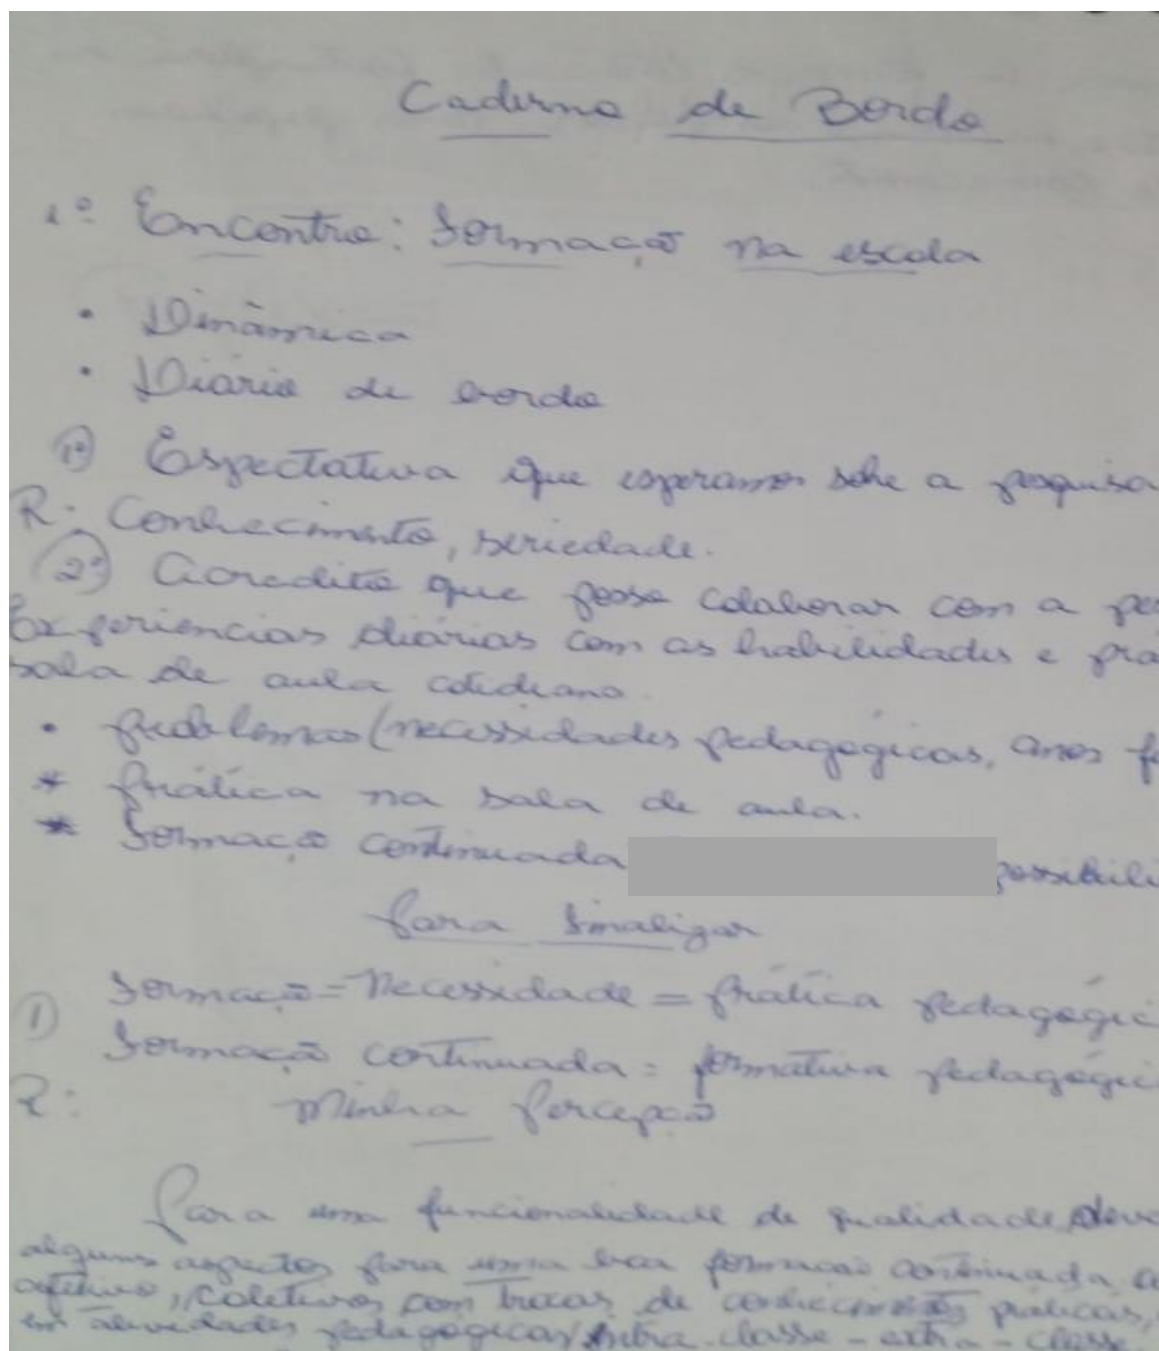 Caderno de Bordo
1º Encontro: Formação na escola
• Dinâmica
• Diário de bordo
1º Espectativa que esperamos sobre a pesquisa
R: Conhecimento, seriedade.
2º Acredito que posso colaborar com a pes
Experiencias diárias com as habilidades e prá
sala de aula cotidiano.
• problemas (necessidades pedagógicas, anos f
* Prática na sala de aula.
* Formação continuada possibili
Para Finalizar
1) Formação = Necessidade = Prática pedagógic
Formação continuada = formativa pedagógic
R: Minha Percepção
Para uma funcionalidade de qualidade, deve
alguns aspectos para uma boa formação continuada,
coletivos com trocas de conhecimentos práticas,
em atividades pedagógicas intra-classe - extra-classe.